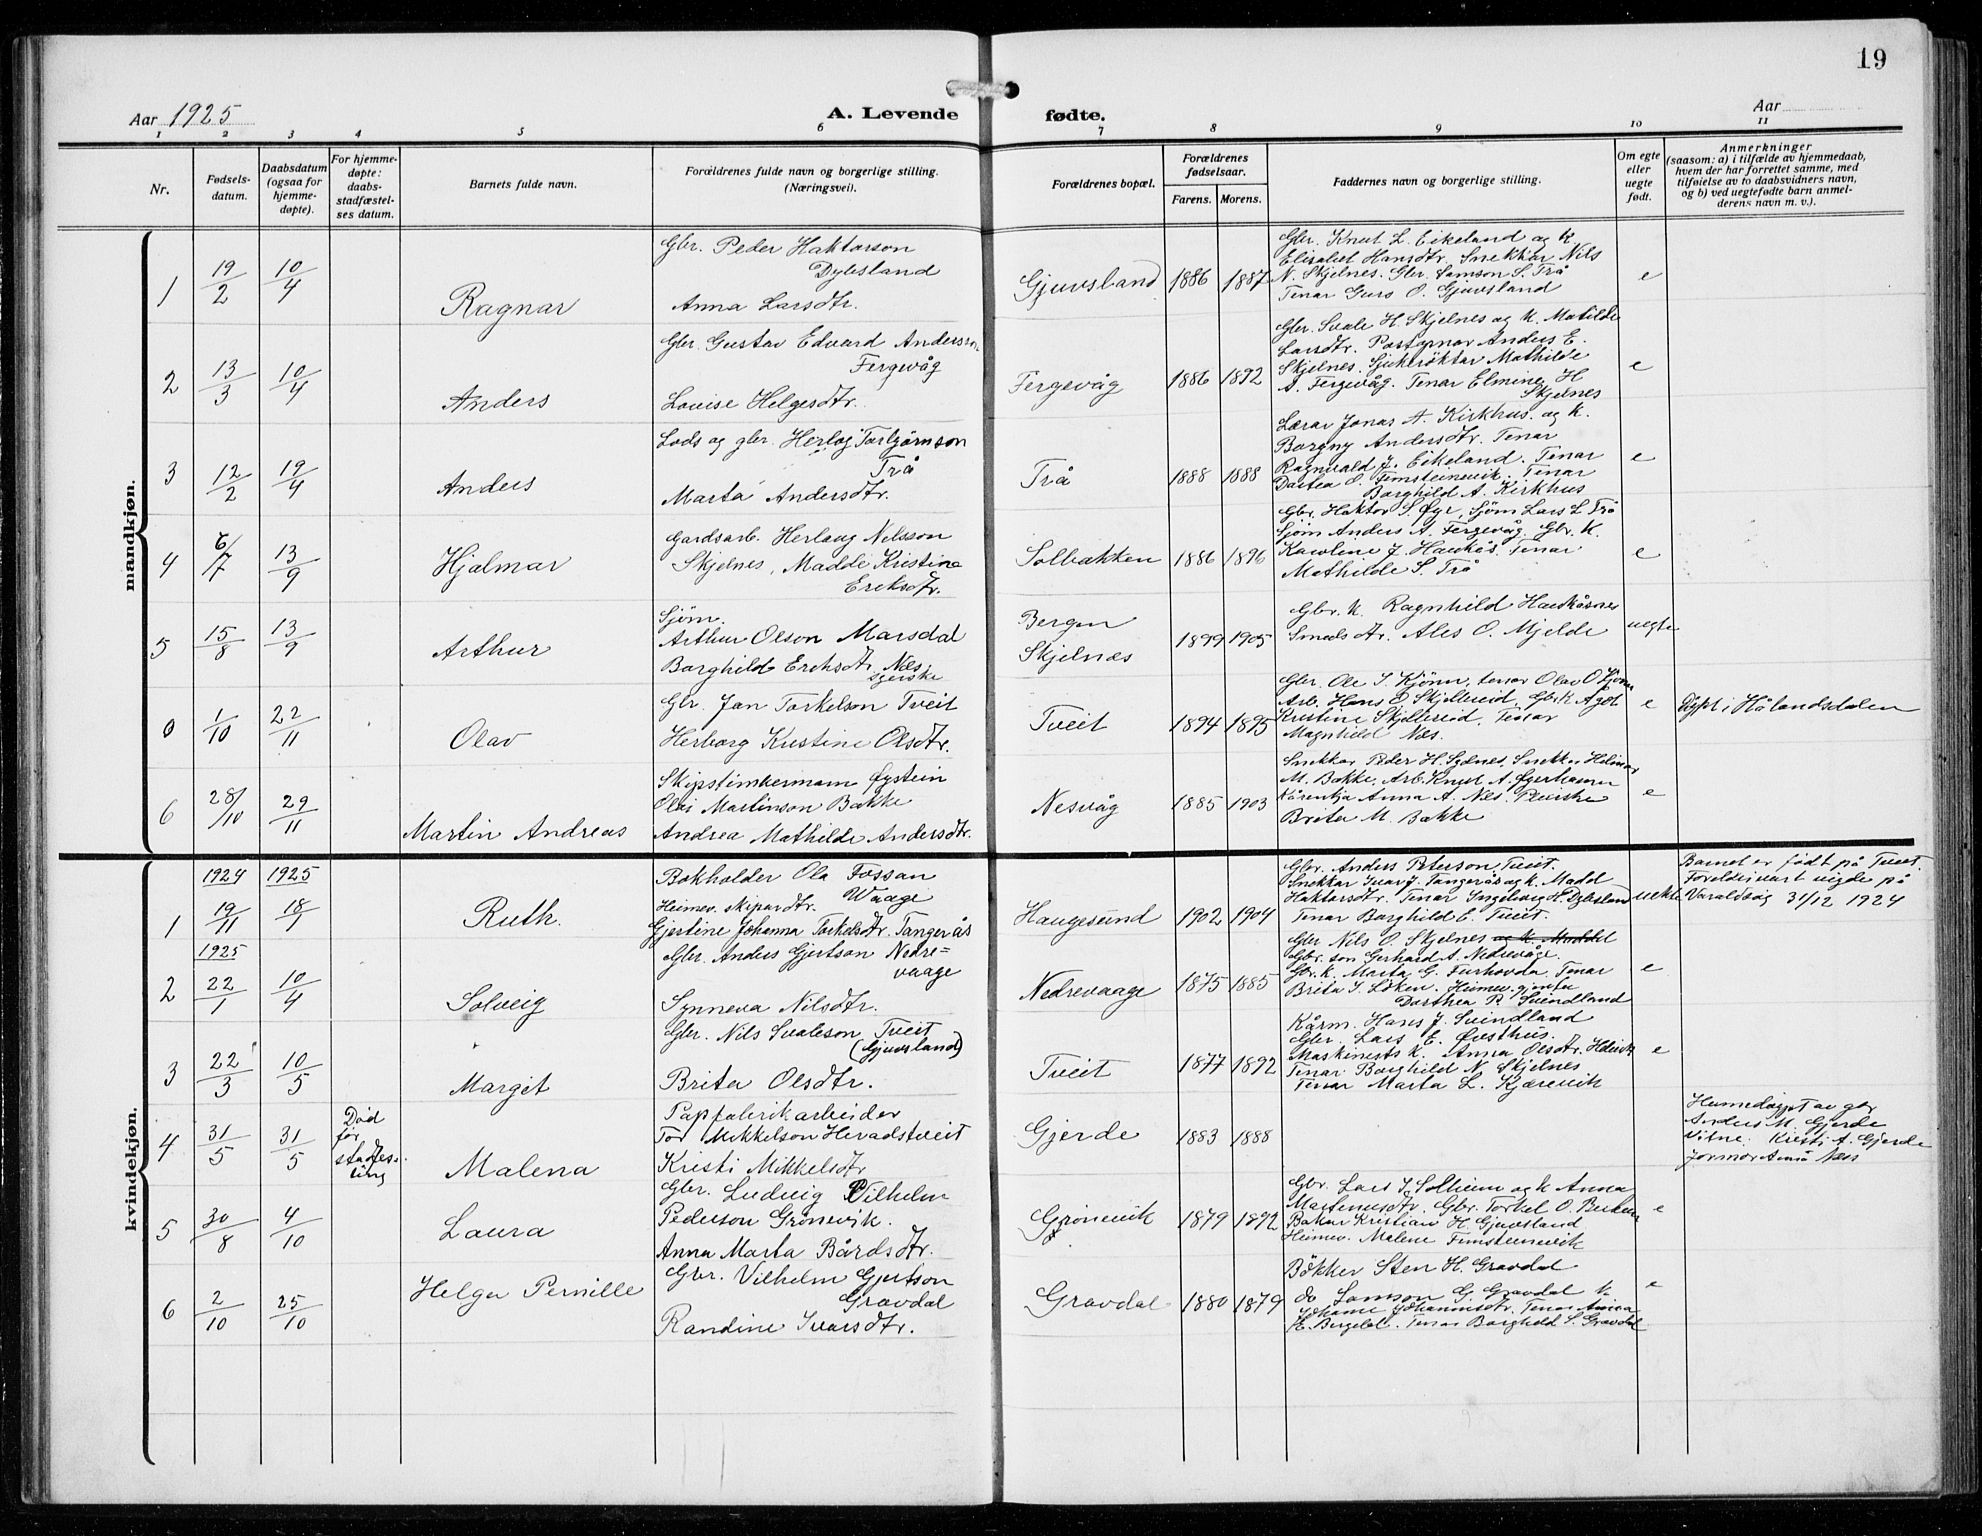 19
Aar 1925
A. Levende fødte.
Aar
1 2 3 4 5 6 7 8 9 10 11
Nr.
Fødsels-
datum.
Daabsdatum
(ogsaa for
hjemme-
døpte).
For hjemme-
døpte:
daabs-
stadfæstel-
ses datum.
Barnets fulde navn.
Forældrenes fulde navn og borgerlige stilling.
(Næringsvei).
Forældrenes bopæl.
Forældrenes
fødselsaar.
Farens. Morens.
Faddernes navn og borgerlige stilling.
Om egte
eller
uegte
født.
Anmerkninger
(saasom: a) i tilfælde av hjemmedaab,
hvem der har forrettet samme, med
tilføielse av to daabsvidners navn,
og b) ved uegtefødte barn anmel-
derens navn m. v.).
mandkjøn.
1 19/2 10/4 Ragnar
Gbr. Peder Haktorson
Dylesland
Anna Larsdtr.
Gjuvsland 1886 1887
Gbr. Knut L. Eikeland og k
Elisabet Hansdtr. Snekkar Nils
N. Skjelnes. Gbr. Samson S. Trå
Tenar Guro O. Gjuvsland
e
2 13/3 10/4 Anders
Gbr. Gustav Edvard Anderson
Fergevåg
Louise Helgesdtr.
Fergevåg 1886 1892
Gbr. Svale H. Skjelnes og k. Matilde
Larsdtr. Postopnar Anders E.
Skjelnes. Sjukrøktar Mathilde
A. Fergevåg. Tenar Elmine H
Skjelnes
e
3 12/2 19/4 Anders
Lods og gbr. Herlog Torbjørnson
Trå
Marta Andersdtr.
Trå 1888 1888
Lærar Jonas A. Kirkhus og k.
Borgny Andersdtr. Tenar
Ragnvald J. Eikeland. Tenar
Dortea O. Femsteinevik. Tenar
Borghild A. Kirkhus
e
4 6/7 13/9 Hjalmar
Gardsarb. Herlaug Nilsson
Skjelnes, Madde Kristine
Eriksdtr.
Solbakken 1886 1896
Gbr. Haktor S. Øyr, Sjøm Lars L. Trå
Sjøm Anders A. Fergevåg. Gbr. k.
Karoline J. Haukås. Tenar
Mathilde S. Trå
e
5 15/8 13/9 Arthur
Sjøm.
Arthur Olson Marsdal
Borghild Eriksdtr. Næs
syerske
Bergen
Skjelnæs
1899 1905
Gbr. k. Ragnhild Haukåsnes
Smeds dtr. Ales O. Mjelde
uegte
0 1/10 22/11 Olav
Gbr. Jan Torkelson Tveit
Herborg Kristine Olsdtr.
Tveit 1894 1895
Gbr. Ole I. Kjønn, tenar Olav O
Arb. Hans E Skjellereid, Gbr. k Ågot
Kristine Skjellereid, Tenar
Magnhild Næs.
e
Døpt i Hålandsdalen
6 28/10 29/11 Martin Andreas
Skipstimmermann Øystein
Olai Martinson Bakke
Andrea Mathilde Andersdtr.
Nesvåg 1885 1903
Snekkar Peder H. Snekkar Hilmar
M. Bakke. Arb. Knut A. Øgerhamn
Anna A. Næs.
Brita M. Bakke
e
kvindekjøn.
1924 1925
1 19/11 18/1 Ruth
Bokholder Ola Fossan
Waage
Heimev. skipardtr.
Gjertine Johanna Torkelsdtr. Tangerås
Haugesund 1902 1904
Gbr. Anders Peterson Tveit.
Snekkar Ivar J. Tangerås og k. Madd
Haktorsdtr. Tenar Ingeborg H. Dylesland
Tenar Borghild E. Tveit.
uekte
Barnet er født på Tveit.
Foreldri vart vigde på
Varaldsøy 31/12 1924
1925
2 22/1 10/4 Solveig
Gbr. Anders Gjertson Nedre-
vaage
Synneva Nilsdtr.
Nedrevaage 1875 1885
Gbr Nils O. Skjelnes og k Maddel
Gbr. son Gerhard A. Nedrevåge.
Gbr. k. Marta G. Furhovda. Tenar
Brita I. Løken. Heimev. gjenta
Dorthea P. Svindland
e
3 22/3 10/5 Margit
Gbr. Nils Svaleson Tveit
(Gjuvsland)
Brita Olsdtr.
Tveit 1877 1892
Kårm. Hans J. Svindland
Gbr. Lars E. Øvsthus.
Maskinists k. Anna Olsdtr.
Tenar Borghild N. Skjelnes
Tenar Marta L. Kjærevik
e
4 31/5 31/5
Død
før
stadfes-
ting
Malena
Papfabrikarbeider
Tor Mikkelson Heradstveit
Kristi Mikkelsdtr
Gjerde 1883 1888
Heimedøypt av gbr
Anders M. Gjerde
Vitne: Kristi A. Gjerde
jormor Anna Næss
5 30/8 4/10 Laura
Gbr. Ludvig Vilhelm
Pederson Grønevik.
Anna Marta Bårdsdtr.
Grønevik 1879 1892
Gbr. Lars I. Solheim og k Anna
Martinusdtr. Gbr Torkel O.
Bakar Kristian H. Gjuvsland
Heimev. Malene Femsteinevik
e
6 2/10 25/10 Helga Pernille
Gbr. Vilhelm Gjertson
Gravdal
Randine Ivarsdtr.
Gravdal 1880 1879
Bökker Sten H. Gravdal
do Samson G. Gravdal k
Johanne Johannesdtr. Tenar Anna
H. Tenar Borghild S. Gravdal
e